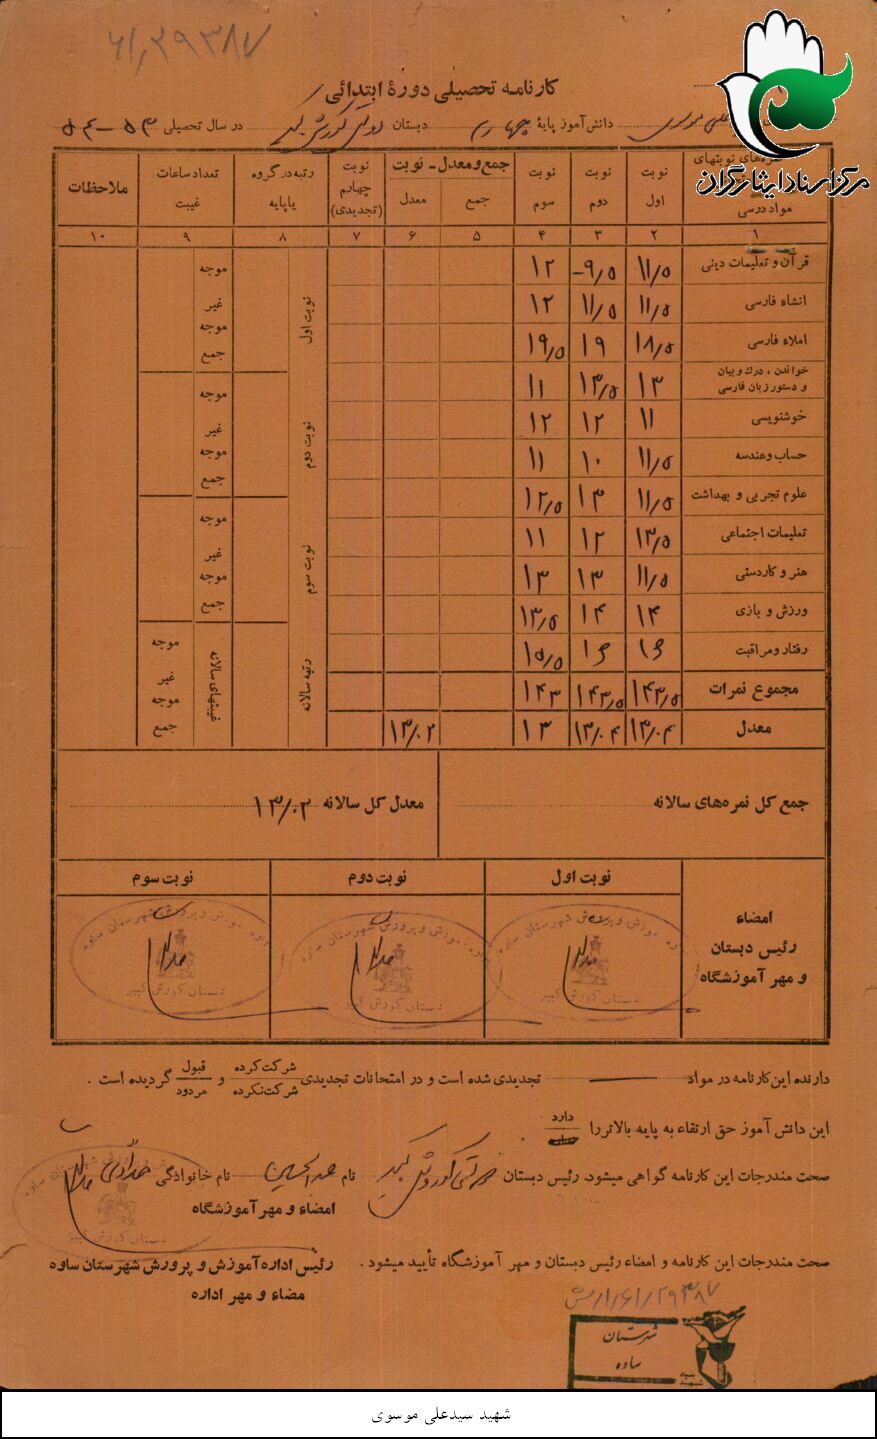 ۶۱٫۲۹۳۸۷
مرکز اسناد ایثارگران
کارنامه تحصیلی دورهٔ ابتدائی
علی موسوی دانش‌آموز پایهٔ چهارم دبستان دولتی کورش کبیر در سال تحصیلی ۵۳-۵۴
نمره‌های نوبتهای مواد درسی نوبت اول نوبت دوم نوبت سوم جمع و معدل - نوبت جمع معدل نوبت چهارم (تجدیدی) رتبه در گروه یا پایه تعداد ساعات غیبت ملاحظات
۱ ۲ ۳ ۴ ۵ ۶ ۷ ۸ ۹ ۱۰
قرآن و تعلیمات دینی ۱۱/۵ ۹/۵- ۱۲
انشاء فارسی ۱۱/۵ ۱۱/۵ ۱۲
املاء فارسی ۱۸/۵ ۱۹ ۱۹/۵
خواندن ، درك و بیان و دستور زبان فارسی ۱۳ ۱۳/۵ ۱۱
خوشنویسی ۱۱ ۱۲ ۱۲
حساب و هندسه ۱۱/۵ ۱۰ ۱۱
علوم تجربی و بهداشت ۱۱/۵ ۱۳ ۱۲/۵
تعلیمات اجتماعی ۱۳/۵ ۱۲ ۱۱
هنر و کاردستی ۱۱/۵ ۱۳ ۱۳
ورزش و بازی ۱۴ ۱۴ ۱۳/۵
رفتار و مراقبت ۱۶ ۱۶ ۱۵/۵
مجموع نمرات ۱۴۳/۵ ۱۴۳/۵ ۱۴۳
معدل ۱۳/۰۴ ۱۳/۰۴ ۱۳ ۱۳/۰۲
نوبت اول موجه غیر موجه جمع
نوبت دوم موجه غیر موجه جمع
نوبت سوم موجه غیر موجه جمع
رتبه سالانه غیبتهای سالانه موجه غیر موجه جمع
جمع کل نمره‌های سالانه معدل کل سالانه ۱۳/۰۲
امضاء رئیس دبستان و مهر آموزشگاه نوبت اول نوبت دوم نوبت سوم
اداره آموزش و پرورش شهرستان ساوه
دبستان کورش کبیر
اداره آموزش و پرورش شهرستان ساوه
دبستان کورش کبیر
اداره آموزش و پرورش شهرستان ساوه
دبستان کورش کبیر
دارنده این کارنامه در مواد تجدیدی شده است و در امتحانات تجدیدی شرکت کرده شرکت نکرده و قبول مردود گردیده است .
این دانش آموز حق ارتقاء به پایه بالاتر را دارد
صحت مندرجات این کارنامه گواهی میشود. رئیس دبستان کورش کبیر نام عبدالحسین نام خانوادگی
امضاء و مهر آموزشگاه
صحت مندرجات این کارنامه و امضاء رئیس دبستان و مهر آموزشگاه تأیید میشود . رئیس اداره آموزش و پرورش شهرستان ساوه
مضاء و مهر اداره
شهرستان
ساوه
بنیاد شهید
شهید سیدعلی موسوی